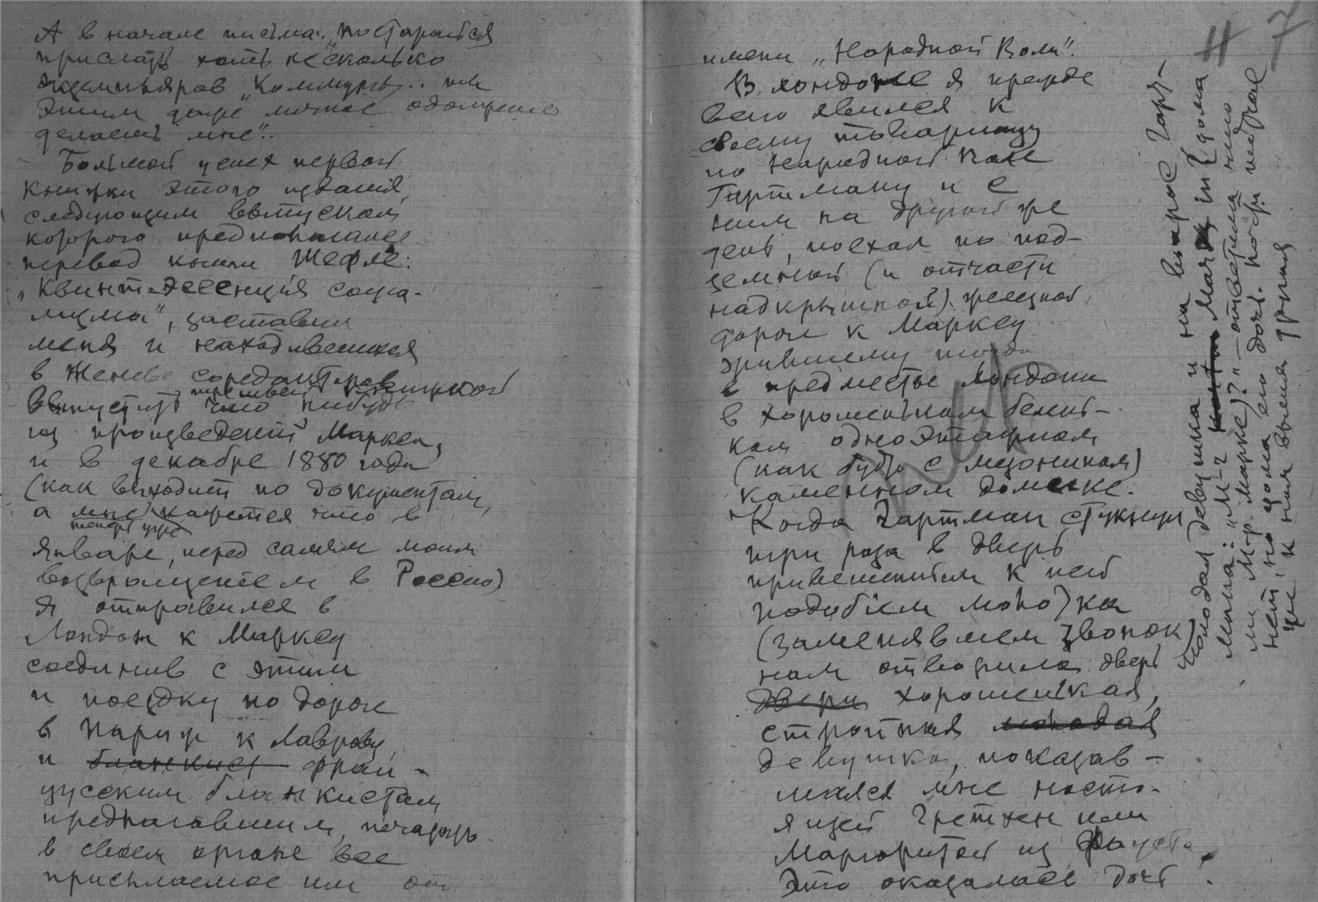 А в начале письма: „постарайся
прислать хоть несколько
экземпляров „Коммуны"... ты
этим даже личное одолжение
делаешь мне".
Большой успех первой
книжки этого издания
следующим выпуском
которого предполагался
перевод книги Шефле:
„Квинт-эссенция социа-
лизма", заставил
меня и находившихся
в Женеве соредакторов
выпустить что нибудь
из произведений Маркса,
и в декабре 1880 года
(как выходит по документам,
а мне кажется что в
теперь уже
январе, перед самым моим
возвращением в Россию)
я отправился в
Лондон к Марксу
соединив с этим
и поездку по дороге
в Париж к Лаврову
и бланкист фран-
цузским бланкистам
предлагавшим печатать
в своем органе все
присылаемое им от
имени „Народной Воли".
В Лондоне я прежде
всего явился к
своему товарищу
по Народной Воле
Гартману и с
ним на другой же
день, поехал по под-
земной (и отчасти
надкрышной) железной
дороге к Марксу
жившему тогда
в предместье Лондона
в хорошеньком беленьком
одноэтажном
(как будто с мезонином)
каменном домике.
Когда Гартман стукнул
три раза в дверь
привешенным к ней
подобием молотка
(заменявшем звонок)
нам отворила дверь
двери хорошенькая,
стройная молодая
девушка, показав-
шаяся мне насто-
ящей Гретхен или
Маргаритой из Фауста.
Это оказалась дочь
молодая девушка и на вопрос Гарт-
мана: „М-r Маркс in? (дома
ли М-р. Маркс)?" — ответила что
нет, но дома его дочь.
же к ним вышла другая
11 7